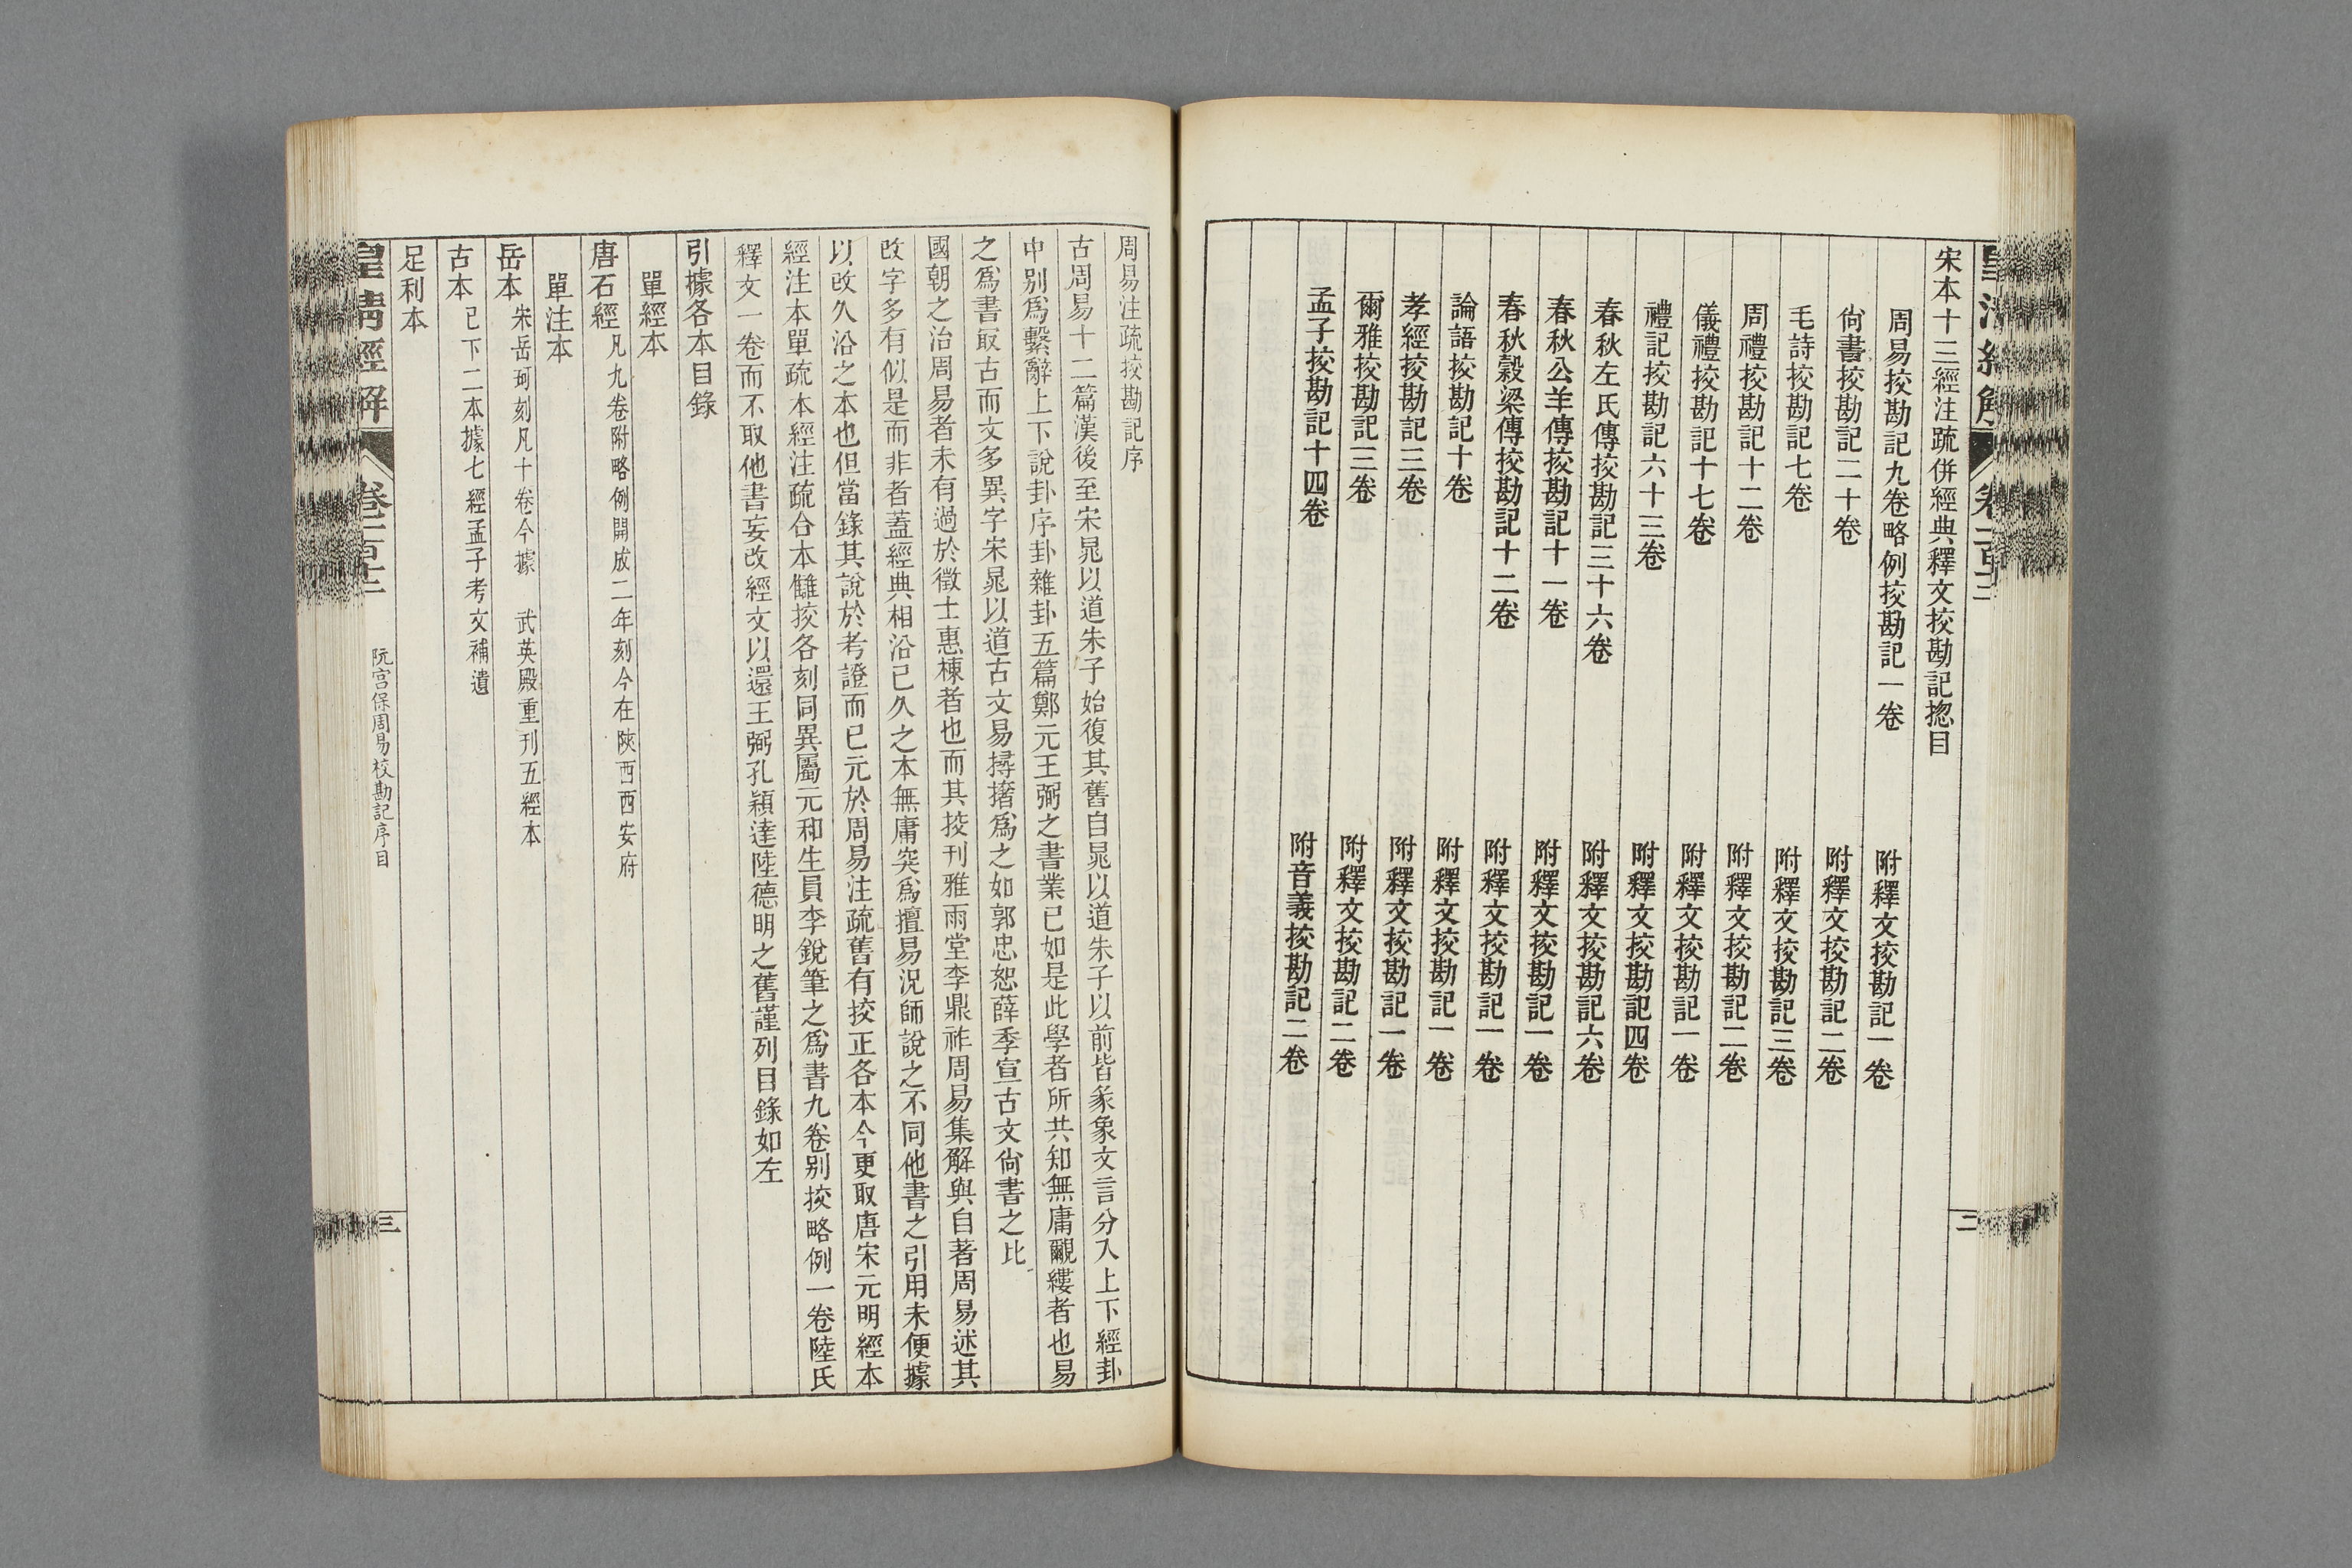 宋本十三經注䟽併經典釋文挍勘記揔目
周易挍勘記九卷略例挍勘記一卷 附釋文挍勘記一卷
尙書挍勘記二十卷 附釋文挍勘記二卷
毛詩挍勘記七卷 附釋文挍勘記三卷
周禮挍勘記十二卷 附釋文挍勘記二卷
儀禮挍勘記十七卷 附釋文挍勘記一卷
禮記挍勘記六十三卷 附釋文挍勘記四卷
春秋左氏傳挍勘記三十六卷 附釋文挍勘記六卷
春秋公羊傳挍勘記十一卷 附釋文挍勘記一卷
春秋穀梁傳挍勘記十二卷 附釋文挍勘記一卷
論語挍勘記十卷 附釋文挍勘記一卷
孝經挍勘記三卷 附釋文挍勘記一卷
爾雅挍勘記三卷 附釋文挍勘記二卷
孟子挍勘記十四卷 附音義挍勘記二卷
二
周易注疏挍勘記序
古周易十二篇漢後至宋晁以道朱子始復其舊自晁以道朱子以前皆彖象文言分入上下經卦
中別爲繫辭上下說卦序卦雜卦五篇鄭元王弼之書業已如是此學者所共知無庸覼縷者也易
之爲書㝡古而文多異字宋晁以道古文易撏撦爲之如郭忠恕薛季宣古文尙書之比
國朝之治周易者未有過於徵士惠棟者也而其挍刊雅雨堂李鼎祚周易集解與自著周易述其
改字多有似是而非者蓋經典相沿已久之本無庸突爲擅易況師說之不同他書之引用未便據
以改久沿之本也但當錄其說於考證而已元於周易注疏舊有挍正各本今更取唐宋元明經本
經注本單疏本經注疏合本讎挍各刻同異屬元和生員李銳筆之爲書九卷別挍略例一卷陸氏
釋文一卷而不取他書妄改經文以還王弼孔穎達陸德明之舊謹列目錄如左
引據各本目錄
單經本
唐石經 凡九卷附略例開成二年刻今在陝西西安府
單注本
岳本 宋岳珂刻凡十卷今據 武英殿重刊五經本
古本 已下二本據七經孟子考文補遺
足利本
皇淸經解 阮宮保周易校勘記序目 三